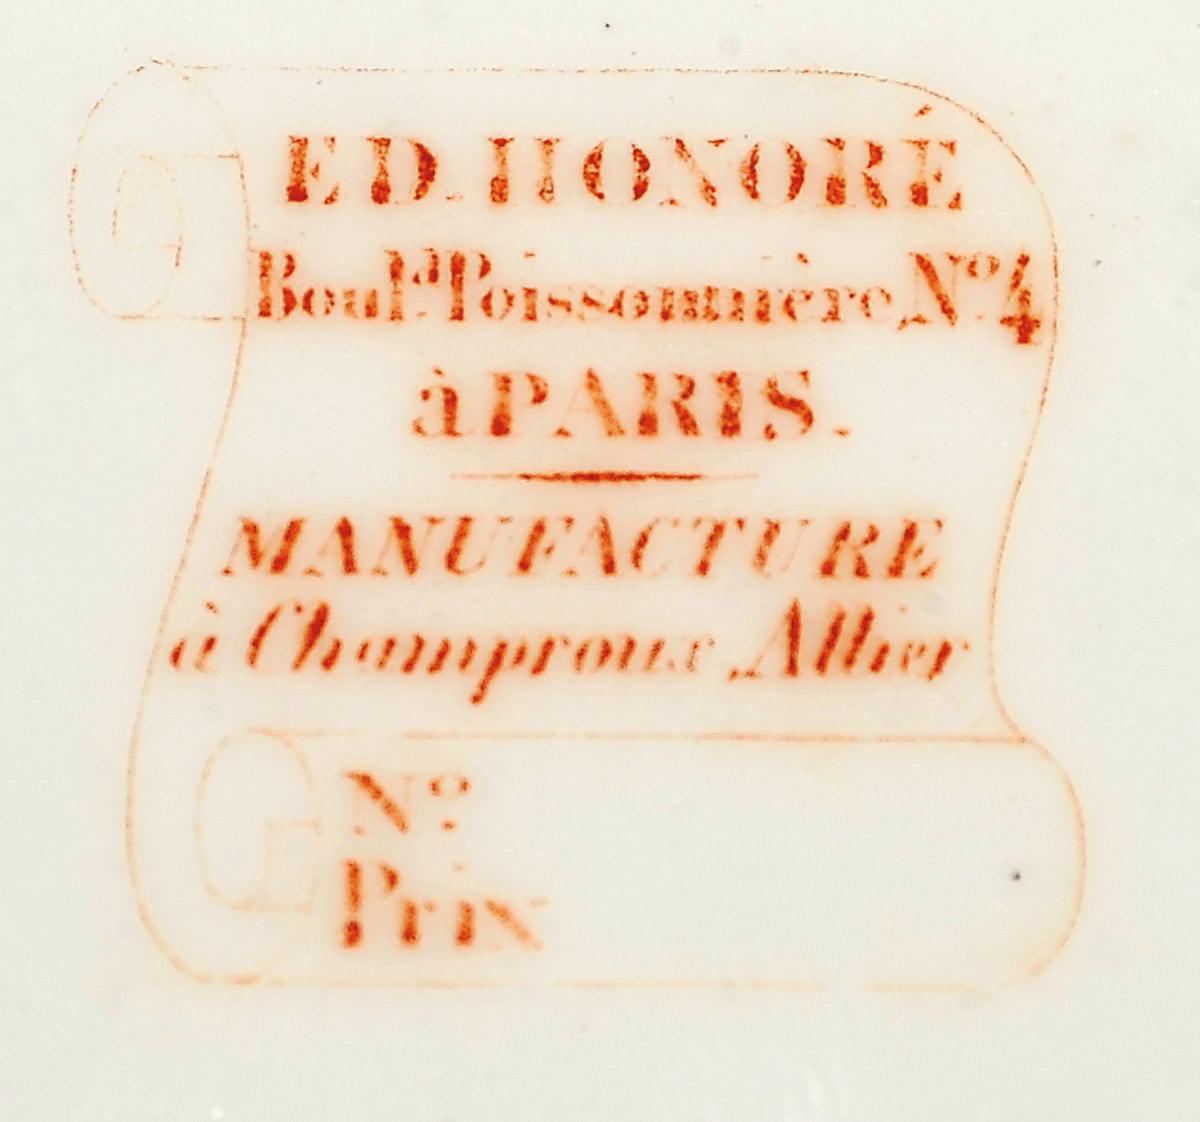 ED. HONORÉ
Boul.d Poissonnière, No. 4
à PARIS.
MANUFACTURE
à Champroux Allier
No.
Prix